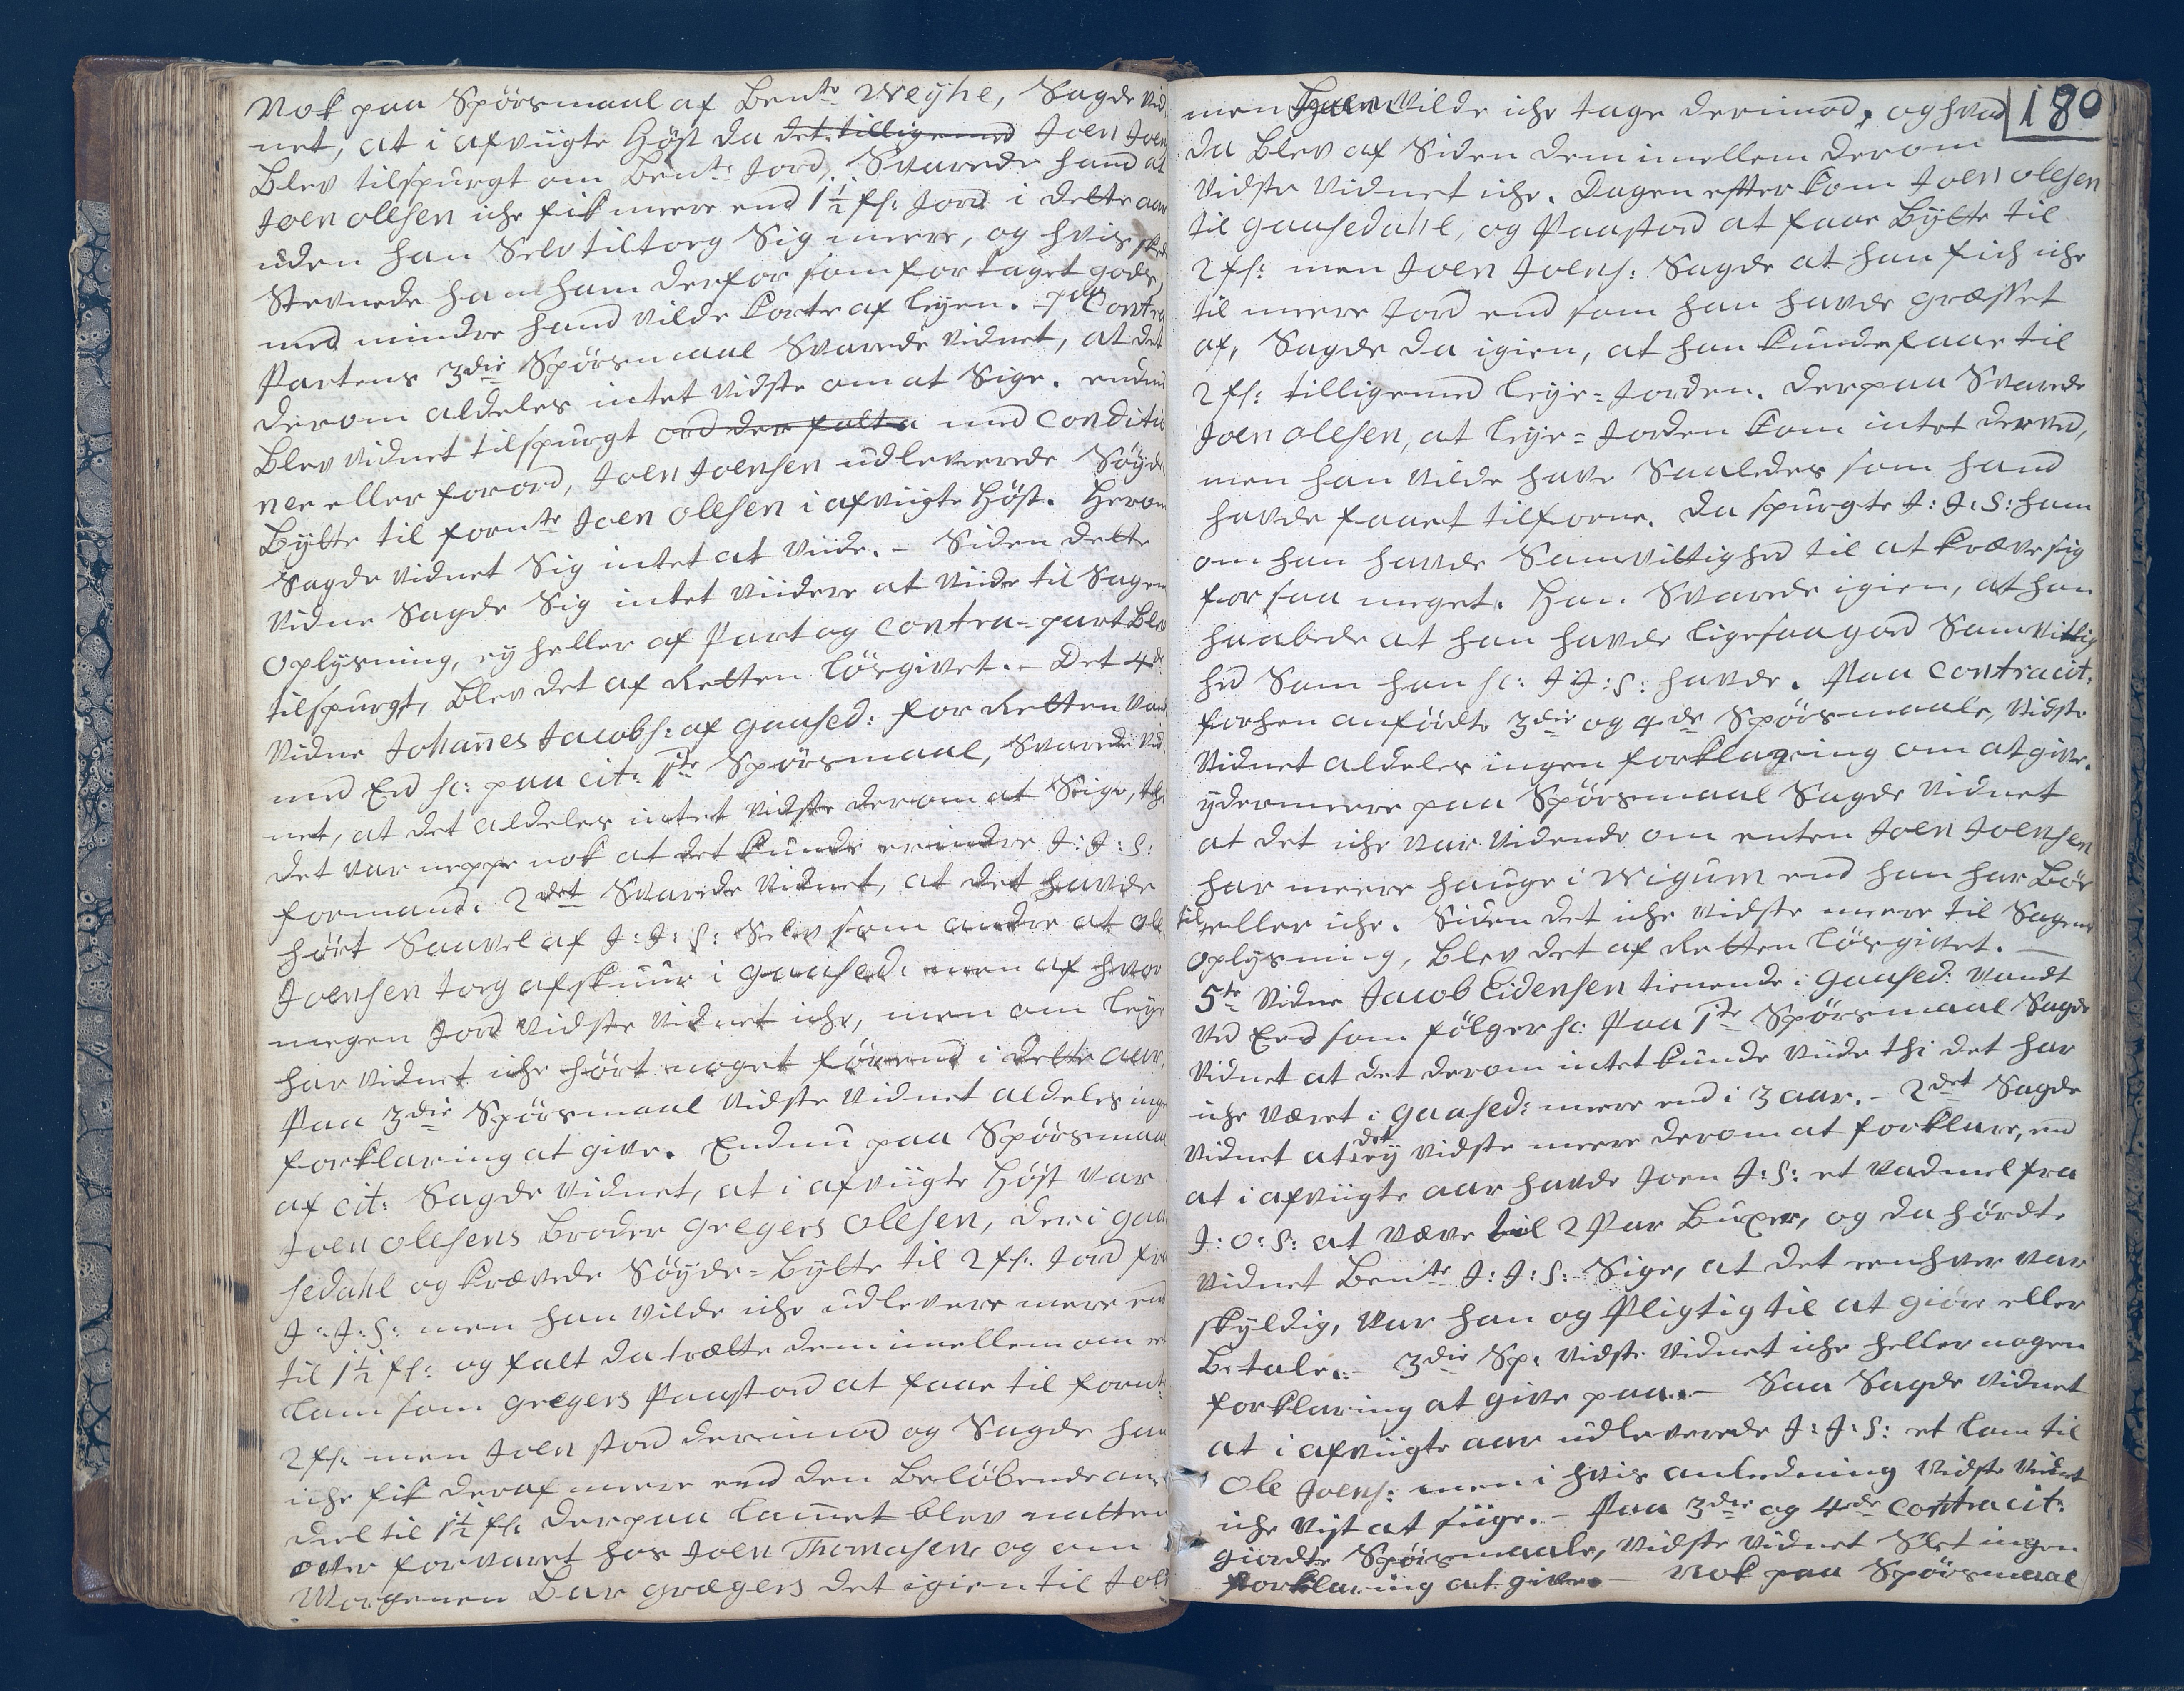 Nok paa Spörsmaal af Bente Weyhe, Sagde Vid
net, at i afvigte Höst da det tilligemed Joen Joen
blev tilspurgt om bente Jord, Svarede hand at
Joen olesen iche fik meere end 1½ fs: Jord i dette aar
uden han Selv tiltorg Sig meere, og hvis
Stevnede han ham derfor som for taget gods,
med mindre hand vilde korte af leyen. paa Contra
Partens 3die Spörsmaal Svarede Vidnet, at det
derom aldeles intet vidste om at Sige. endnu
blev vidnet tilspurgt ord der falt med Conditio
nee eller forord, Joen Joensen udleverede Söyde
Bytte til fornte Joen olesen i afvigte Höst. herom
Sagde vidnet Sig intet at viide. – Siden dette
Vidne Sagde Sig intet viidere at viide til Sagen
oplysning, ey heller af Part og contra-part blev
tilspurgt, blev det af Retten lösgivet. – Det 4de
Vidne Johannes Jacobs: af gaased: for Retten vand
med Eed sc: paa cit: 1te Spörsmaal, Svarede vid
net, at det aldeles intet vidste derom at Siige, thi
det var neppe nok at det kunde erindre J: J: S:
formand. 2det Svarede vidnet, at det havde
hört Saavel af J: J: S: Selv som andre at ole
Joensen torg afskuur i gaased: men af hvor
megen Jord vidste vidnet iche, men om leye
har vidnet iche hört noget förend i dette aar.
Paa 3die Spörsmaal vidste vidnet aldeles inge
forklaring at give. Endnu paa Spörsmaal
af cit: Sagde vidnet, at i afvigte Höst var
Joen olesens broder gregers olesen, der i gaa
sedahl og krævede Söyde-Bytte til 2 fs: Jord fra
J: J: S: men han vilde iche udlevere mere end
til 1½ fs: og falt da trætte dem imellem om et
lam som gregers Paastod at faae til fornte
2 fs: men Joen stod derimod og Sagde han
iche fik deraf meere end den beløbende an
deel til 1½ fs: derpaa lammet blev natten
over forvaret hos Joen Thomasens og om
Morgenen bar grægers det igien til Joen
180
men Joen vilde iche tage derimod, og hvad
da blev af Siden dem imellem derom
vidste vidnet iche. Dagen efter kom Joen olesen
til gaasedahl, og Paastod at faae Bytte til
2 fs: men Joen Joens: Sagde at han fich iche
til meere Jord end som han havde græsset
af, Sagde da igien, at han kunde faae til
2 fs: tilligemed leye-Jorden. derpaa Svarede
Joen olesen, at leye-Jorden kom intet derved,
men han vilde have Saaledes som hand
havde faaet tilforne. da spurgte J: J: S: ham
om han havde Samvittighed til at kræve sig
for saa meget. Han Svarede igien, at han
haabede at han havde ligesaa god Samvittig
hed Som han sc: J: J: S: havde. Paa contracit:
forhen anfördte 3die og 4de Spörsmaale, vidste
Vidnet aldeles ingen forklaring om at give.
ydermeere paa Spörsmaal Sagde vidnet
at det iche var vidende om enten Joen Joensen
har meere hauge i Wigum end han har bör
til eller iche. Siden det iche vidste meere til Sagens
oplysning, blev det af Retten lösgivet. –
5te Vidne Jacob Eidensen tienende i gaased: vandt
ved Eed som fölger sc: Paa 1te Spörsmaal Sagde
Vidnet at det derom intet kunde viide thi det har
iche været i gaased: meere end i 3 aar. – 2det Sagde
Vidnet at det ey vidste meere derom at forklare, end
at i afvigte aar havde Joen J: S: et vadmel fra
J: O: S: at væve til 2 Par buxer, og da hördte
vidnet bente J: J: S: Sige, at det eenhver var
skyldig, var han og Pligtig til at giöre eller
betale. – 3die Sp: vidste vidnet iche heller nogen
forklaring at give paa. – Saa Sagde vidnet
at i afvigte aar udleverede J: J: S: et lam til
Ole Joens: men i hvis anledning vidste vidnet
iche vist at siige. – Paa 3die og 4de contracit:
giordte Spörsmaale, vidste vidnet Slet ingen
forklaring at give. – Nok paa Spörsmaal